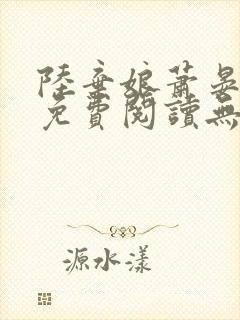 陸棄娘蕭晏
免費閱讀無
源水漾